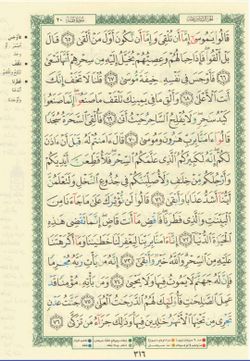 قَالُوا۟ يَٰمُوسَىٰٓ إِمَّآ أَن تُلْقِىَ وَإِمَّآ أَن نَّكُونَ أَوَّلَ مَنْ أَلْقَىٰ ٦٥ قَالَ
بَلْ أَلْقُوا۟ فَإِذَا حِبَالُهُمْ وَعِصِيُّهُمْ يُخَيَّلُ إِلَيْهِ مِن سِحْرِهِمْ أَنَّهَا تَسْعَىٰ ٦٦
فَأَوْجَسَ فِى نَفْسِهِۦ خِيفَةً مُّوسَىٰ ٦٧ قُلْنَا لَا تَخَفْ إِنَّكَ
أَنتَ ٱلْأَعْلَىٰ ٦٨ وَأَلْقِ مَا فِى يَمِينِكَ تَلْقَفْ مَا صَنَعُوٓا۟ إِنَّمَا صَنَعُوا۟
كَيْدُ سَٰحِرٍ وَلَا يُفْلِحُ ٱلسَّاحِرُ حَيْثُ أَتَىٰ ٦٩ فَأُلْقِىَ ٱلسَّحَرَةُ سُجَّدًا
قَالُوٓا۟ ءَامَنَّا بِرَبِّ هَٰرُونَ وَمُوسَىٰ ٧٠ قَالَ ءَامَنتُمْ لَهُۥ قَبْلَ أَنْ ءَاذَنَ
لَكُمْ إِنَّهُۥ لَكَبِيرُكُمُ ٱلَّذِى عَلَّمَكُمُ ٱلسِّحْرَ فَلَأُقَطِّعَنَّ أَيْدِيَكُمْ
وَأَرْجُلَكُم مِّنْ خِلَٰفٍ وَلَأُصَلِّبَنَّكُمْ فِى جُذُوعِ ٱلنَّخْلِ وَلَتَعْلَمُنَّ
أَيُّنَآ أَشَدُّ عَذَابًا وَأَبْقَىٰ ٧١ قَالُوا۟ لَن نُّؤْثِرَكَ عَلَىٰ مَا جَآءَنَا مِنَ
ٱلْبَيِّنَٰتِ وَٱلَّذِى فَطَرَنَا فَٱقْضِ مَآ أَنتَ قَاضٍ إِنَّمَا تَقْضِى هَٰذِهِ
ٱلْحَيَوٰةَ ٱلدُّنْيَآ ٧٢ إِنَّآ ءَامَنَّا بِرَبِّنَا لِيَغْفِرَ لَنَا خَطَٰيَٰنَا وَمَآ أَكْرَهْتَنَا
عَلَيْهِ مِنَ ٱلسِّحْرِ وَٱللَّهُ خَيْرٌ وَأَبْقَىٰٓ ٧٣ إِنَّهُۥ مَن يَأْتِ رَبَّهُۥ مُجْرِمًا
فَإِنَّ لَهُۥ جَهَنَّمَ لَا يَمُوتُ فِيهَا وَلَا يَحْيَىٰ ٧٤ وَمَن يَأْتِهِۦ مُؤْمِنًا قَدْ
عَمِلَ ٱلصَّٰلِحَٰتِ فَأُو۟لَٰٓئِكَ لَهُمُ ٱلدَّرَجَٰتُ ٱلْعُلَىٰ ٧٥ جَنَّٰتُ عَدْنٍ
تَجْرِى مِن تَحْتِهَا ٱلْأَنْهَٰرُ خَٰلِدِينَ فِيهَا وَذَٰلِكَ جَزَآءُ مَن تَزَكَّىٰ ٧٦
٣١٦